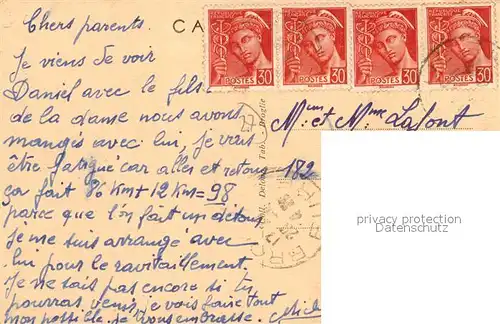 Chers parents.
CA
Je viens de voir
Daniel avec le fils
de la dame nous avons
mangés avec lui, je viens
être fatigué car aller et retour
ça fait 86 Km + 12 Km = 98
parce que l'on fait un détour
Je me suis arrangé avec
lui pour le ravitaillement.
Je ne sais pas encore si tu
pourras venir, je vais faire tout
mon possible, je vous embrasse.
POSTES 30
POSTES 30
POSTES 30
POSTES 30
M. et Mme Lafont
182
Tab. - Broglie
privacy protection
DELCAMPE.net